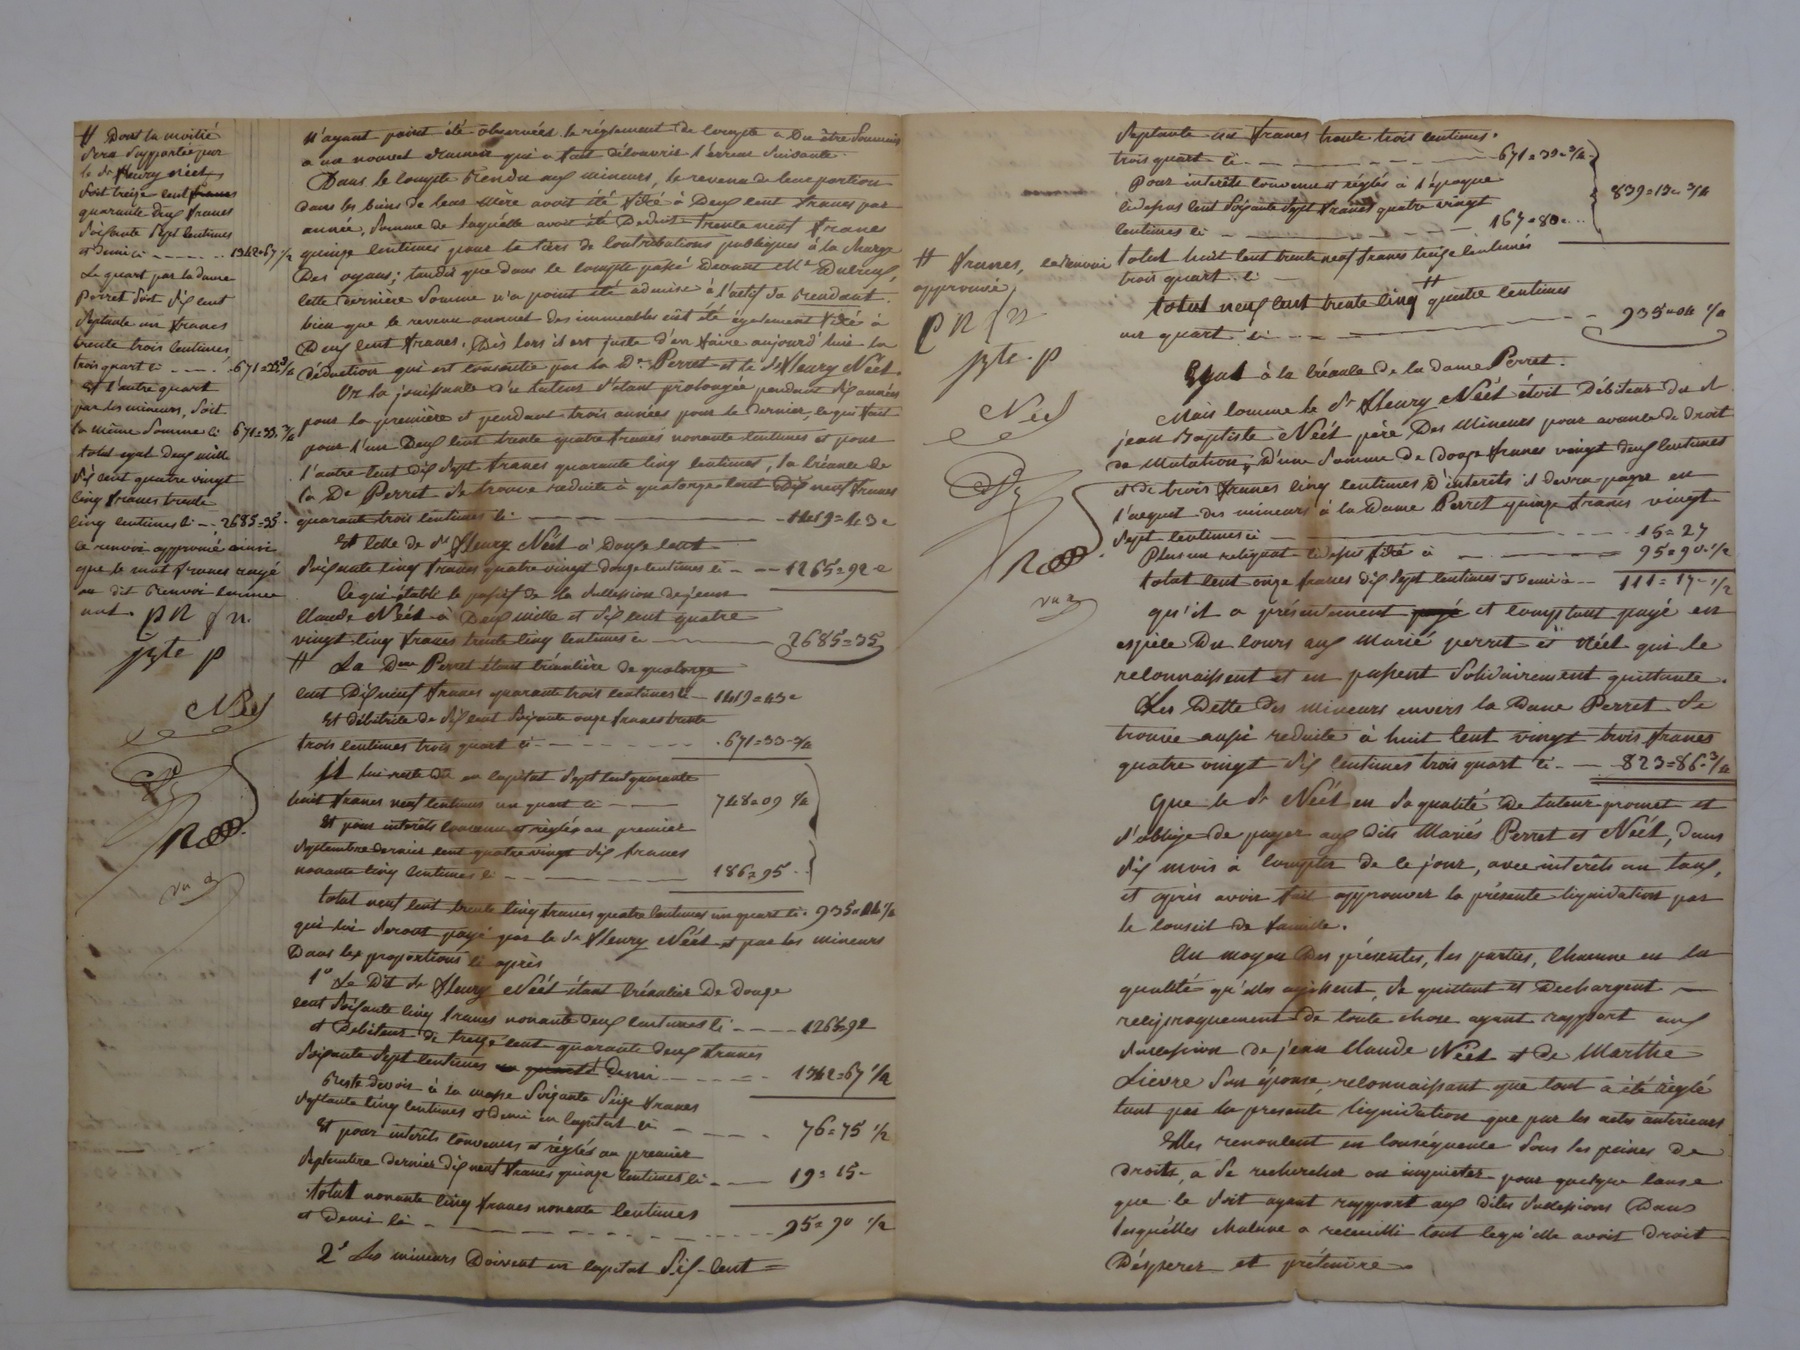 # Dont la moitié
sera supportée par
le Sr fleury néét
soit treize cent francs
quarante deux francs
soixante sept centimes
et demi ci ---- 1342=67 1/2
Le quart par la dame
Perret soit six cent
septante un francs
trente trois centimes
trois quart ci ---- 671=33 3/4
Et l'autre quart
par les mineurs, soit
la même somme ci 671=33. 3/4
total egal deux mille
six cent quatre vingt
cinq francs trente
cinq centimes ci -- 2685=35.
ce renvoi approuvé ainsi
que le mot francs rayé
au dit renvoi comme
nul. PN f n.
jzte p
Néel
n'ayant point été observées le réglement de compte a du être soumis
a un nouvel examen qui a fait découvrir l'erreur suivante.
Dans le compte rendu aux mineurs, le revenu de leur portion
dans les biens de leur mère avoit été fixé à Deux cent francs par
année, somme de laquelle avoit été déduit trente neuf francs
quinze centimes pour le tiers de contributions publiques à la charge
Des oyans; tandis que dans le compte passé devant Me Dubreuil,
cette dernière somme n'a point été admise à l'actif du rendant.
bien que le revenu annuel des immeubles eût été également fixé à
Deux cent francs. Dès lors il est juste d'en faire aujourd'hui la
déduction qui est consentie par la De Perret et le Sr fleury Néét.
Or la jouissance du tuteur s'étant prolongée pendant six années
pour la première et pendant trois années pour le dernier, ce qui fait
pour l'un Deux cent trente quatre francs nonante centimes et pour
l'autre cent dix sept francs quarante cinq centimes, la créance de
la De Perret se trouve reduite à quatorze cent dix neuf francs
quarante trois centimes ci ---- 1419=43c
Et celle de Sr fleury Néét à Douze cent
soixante cinq francs quatre vingt douze centimes ci -- 1265=92c
Ce qui établi le passif de la succession de jean
claude Néét à Deux mille et six cent quatre
vingt cinq francs trente cinq centimes ci ---- 2685=35
# La Dme Perret étant créancière de quatorze
cent Dix neuf francs quarante trois centimes ci - 1419=43c
Et débitrice de six cent soixante onze francs trente
trois centimes trois quart ci ---- 671=33-3/4
Il lui reste dû en capital sept cent quarante
huit francs neuf centimes un quart ci ---- 748=09 1/4
Et pour intérêts convenus et réglés au premier
septembre dernier cent quatre vingt six francs
nonante cinq centimes ci ---- 186=95--
total neuf cent trente cinq francs quatre centimes un quart ci. 935=04 1/4
qui lui seront payé par le Sr fleury Néét et par les mineurs
Dans les proportions ci après
1o Le Dit Sr fleury Néét étant créancier De douze
cent soixante cinq francs nonante deux centimes ci ---- 1265=92
et Debiteur de treize cent quarante deux francs
soixante sept centimes un quarté demi ---- 1342=67 1/2
Reste devoir à la masse soixante seize francs
septante cinq centimes et demi en capital ci ---- 76=75 1/2
Et pour intérêts convenus et réglés au premier
septembre dernier dix neuf francs quinze centimes ci ---- 19=15-
total nonante cinq francs nonante centimes
et demi ci ---- 95=90 1/2
2o Les mineurs Doivent en capital six-cent =
# francs, ce renvoi
approuvé
PN f n
jzte. p
Néel
septante un francs trente trois centimes.
trois quart ci ---- 671=33=3/4
Pour intérêts convenus et réglés à l'époque
ci dessus cent soixante sept francs quatre vingt
centimes ci ---- 167=80=..
839=13c 3/4
total huit cent trente neuf francs treize centimes
trois quart. ci -
total neuf cent trente cinq # quatre centimes
un quart ci ---- 935=04 1/4
Egal à la créance de la dame Perret.
Mais comme le Sr fleury Néét étoit Débiteur du Sr
jean Baptiste Néét père Des mineurs pour avance de droit
de mutation, d'une somme de douze francs vingt deux centimes
et de trois francs cinq centimes d'interets il devra payer en
l'acquit des mineurs à la Dame Perret quinze francs vingt
sept centimes ci ---- 15=27
Plus un reliquat ci dessus fixé à ---- 95=90-1/2
total cent onze francs dix sept centimes et demi ci -- 111=17-1/2
qu'il a présentement payé et comptant payé en
espèce du cours aux mariés perret et Néét qui le
reconnaissent et en passent solidairement quittance.
Les Dette des mineurs envers la Dame Perret se
trouve ainsi reduite à huit cent vingt trois francs
quatre vingt six centimes trois quart ci -- 823=86-3/4
Que le Sr Néét en sa qualité de tuteur promet et
s'oblige de payer aux dits mariés Perret et Néét, dans
six mois à compter de ce jour, avec interets au taux,
et après avoir fait approuver la présente liquidation par
le conseil de famille.
Au moyen Des présentes, les parties, chacune en la
qualité qu'elles agissent, se quittent et déchargent
réciproquement de toute chose ayant rapport aux
succession de jean claude Néét et de Marthe
Lievre son épouse, reconnaissant que tout a été réglé
tant par la presente liquidation que par les actes antérieurs
Elles renoncent en conséquence sous les peines de
droits, a se rechercher ou inquieter pour quelque cause
que ce soit ayant rapport aux dites successions Dans
lesquelles chacune a recueilli tout ce qu'elle avoit droit
D'esperer et prétendre.